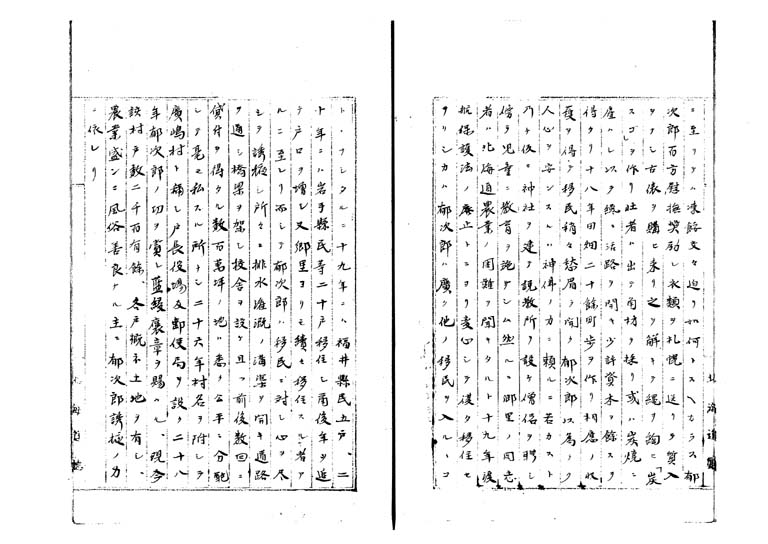 ニ至リテハ凍餒交々迫リ如何トスヘカラス郁
次郎百方慰撫奨励シ衣類ヲ札幌ニ送リテ質入
シ古俵ヲ購ヒ来リ之ヲ解キテ縄ヲ綯ヒ「炭
スゴ」ヲ作リ壮者ハ出テ角材ヲ採リ或ハ炭焼ニ
雇ハレ以テ纔ニ活路ヲ開キ少許資本ヲ餘スヲ
得タリ十八年田畑二十餘町歩ヲ作リ相應ノ収
穫ヲ得テ移民稍々愁眉ヲ開ク郁次郎以為ラク
人心ヲ安ンスルハ神佛ノ力ニ頼ルニ若カスト
乃チ後ニ神社ヲ建テ説教所ヲ設ケ僧侶ヲ聘シ
傍ラ児童ニ教育ヲ施サシム然ルニ郷里ノ同志
者ハ北海道農業ノ困難ヲ聞キタルト十九年渡
航保護法ノ廃止トニヨリ変心シテ僅々移住セ
ヲリシカハ郁次郎ハ廣ク他ノ移民ヲ入ルヽコ
北海道
トヽナシタルニ十九年ニハ福井縣民五戸、二
十年ニハ岩手縣民等二十戸移住シ爾後年ヲ追
テ戸口ヲ増シ又郷里ヨリモ續々移住スル者ア
ルニ至レリ而シテ郁次郎ハ移民ニ対シ心ヲ尽
シテ誘掖シ所々ニ排水灌漑ノ溝渠ヲ開キ道路
ヲ通シ橋梁ヲ架シ校舎ヲ設ケ且ツ前後数回ニ
貸付ヲ得タル数百萬坪ノ地ハ悉ク公平ニ分配
シテ毫モ私スル所ナシ二十六年村名ヲ附シテ
廣嶋村ト稱シ戸長役場及郵便局ヲ設ク二十八
年郁次郎ノ功ヲ賞シ藍綬褒章ヲ賜ハル、現今
該村戸数二千百有餘、各戸概ネ土地ヲ有シ、
農業盛ンニ風俗善良ナル主ニ郁次郎誘掖ノ力
ニ依レリ
北海道